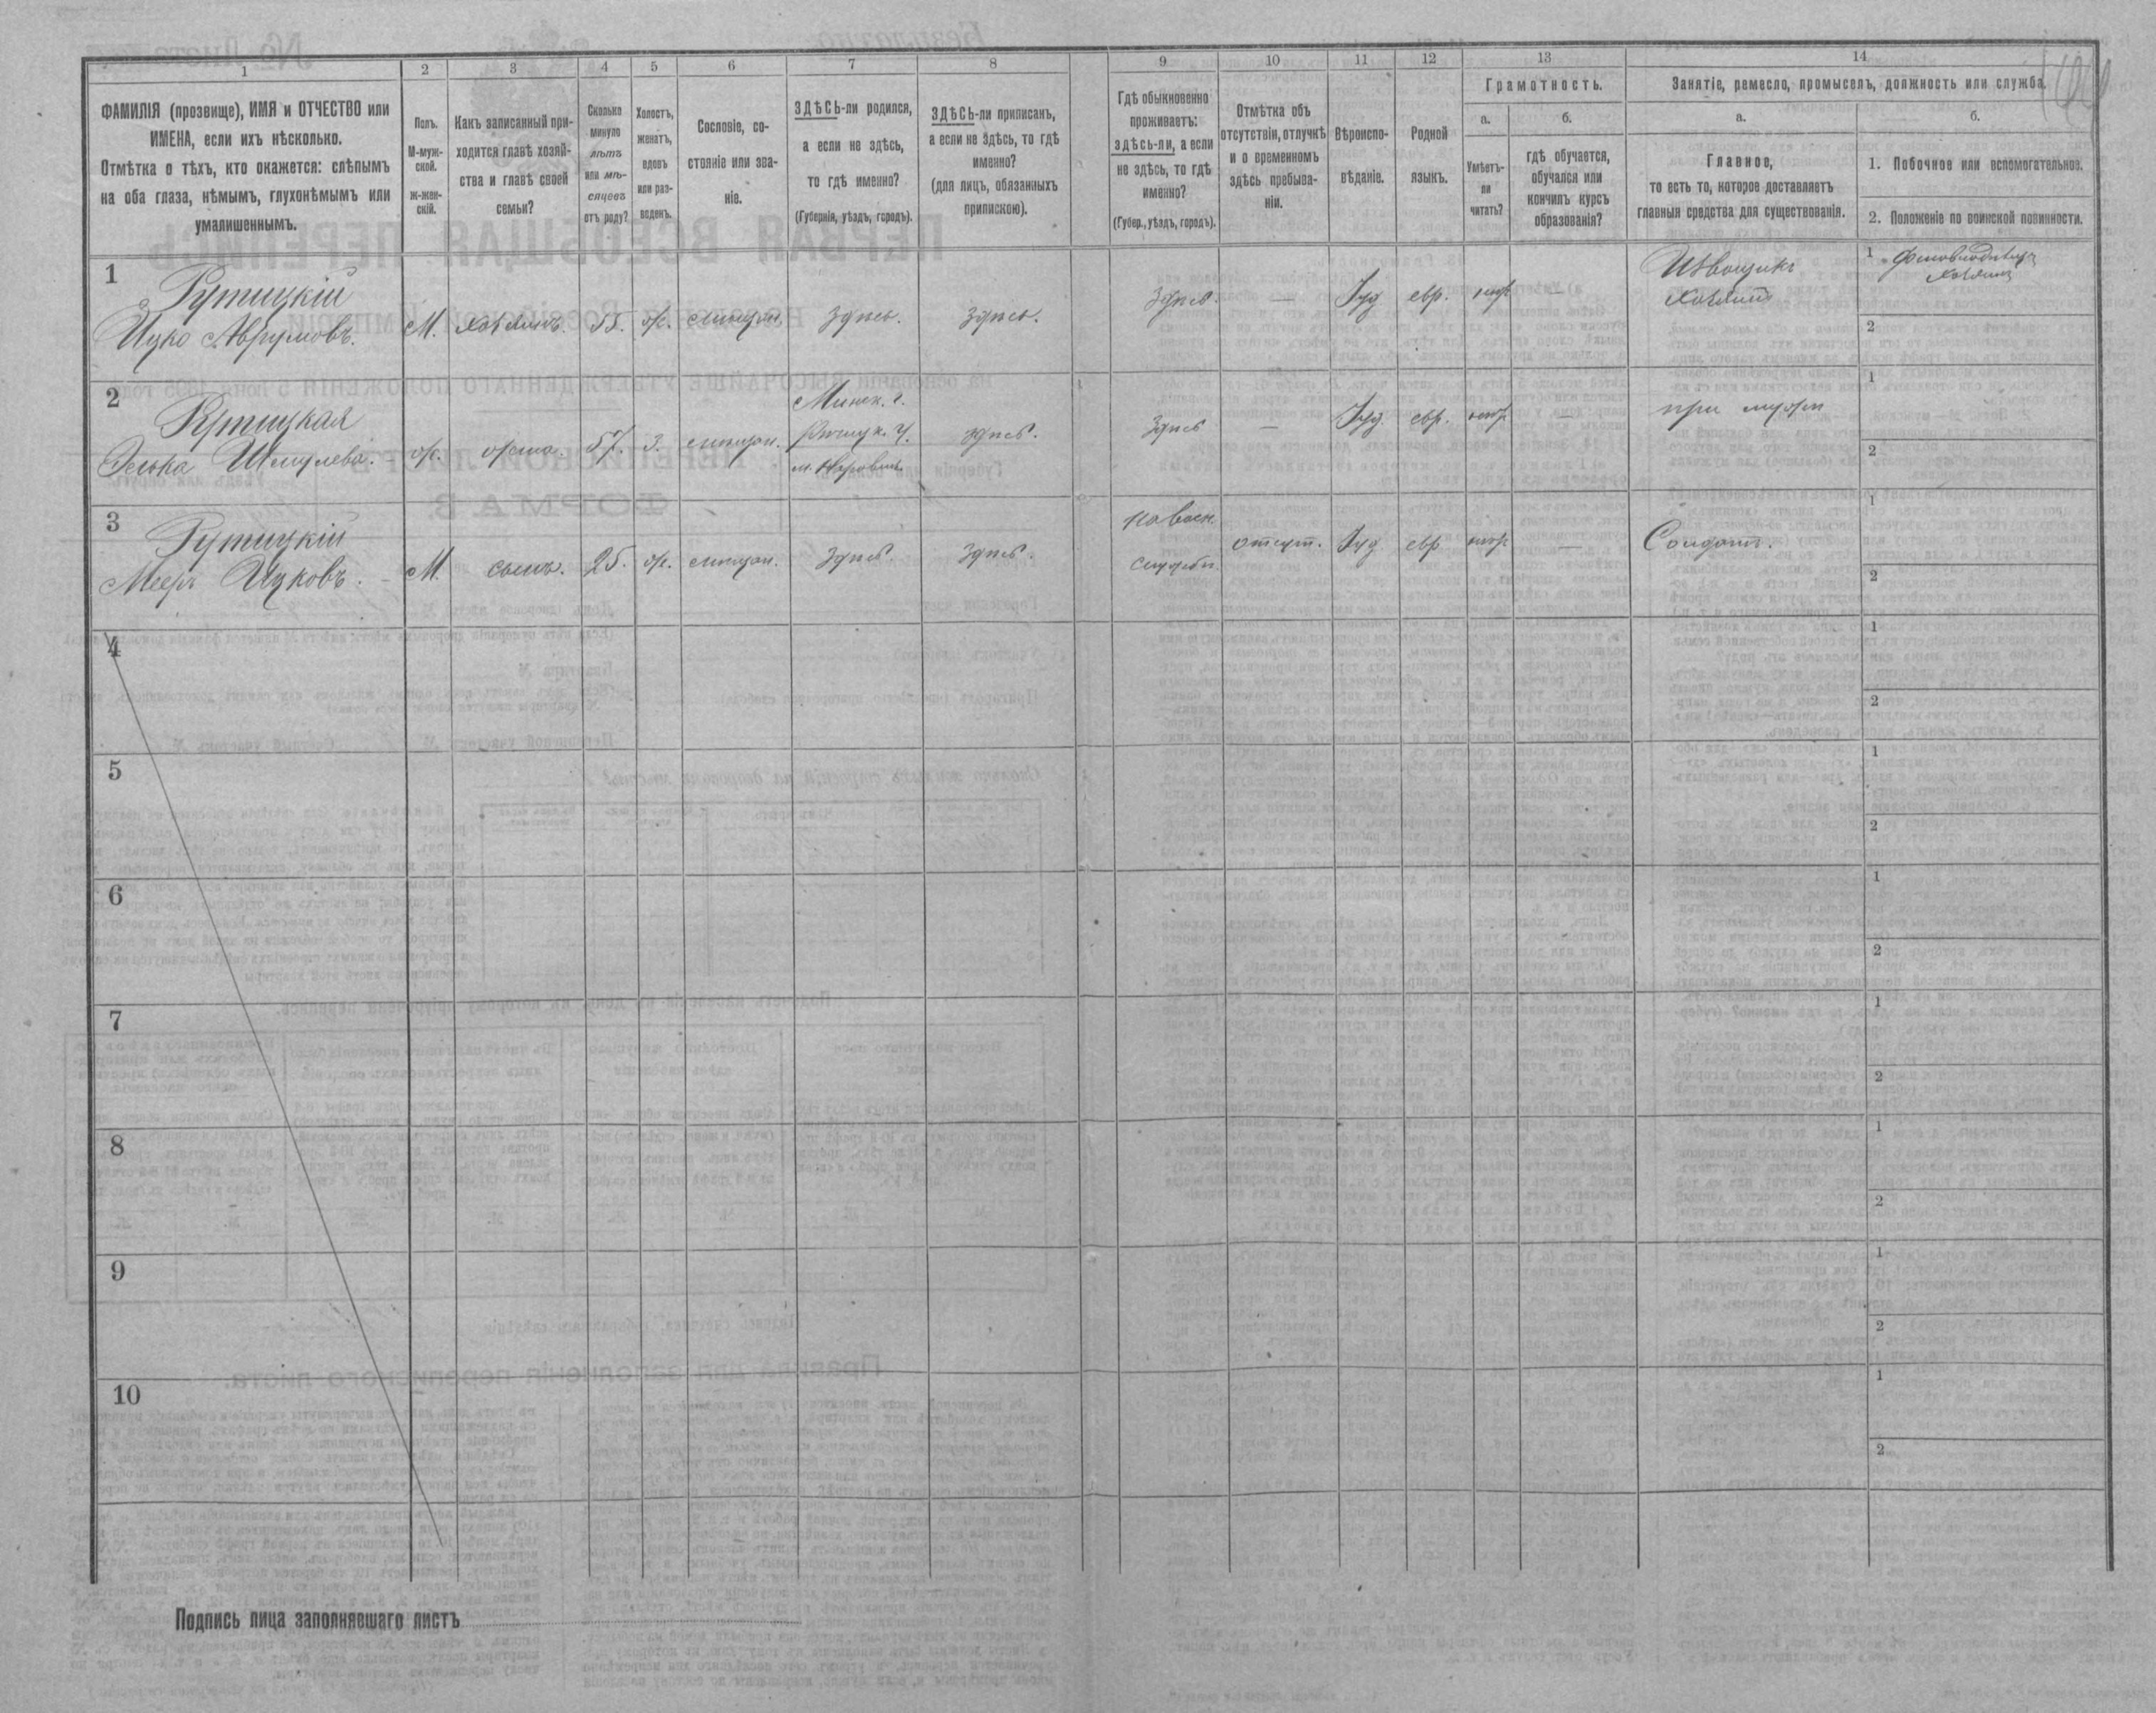 1
2
3
4
5
6
7
8
9
10
11
12
13
14
ФАМИЛІЯ (прозвище), ИМЯ и ОТЧЕСТВО или
ИМЕНА, если ихъ нѣсколько.
Отмѣтка о тѣхъ, кто окажется: слѣпымъ
на оба глаза, нѣмымъ, глухонѣмымъ или
умалишеннымъ.
Полъ.
М-муж-
ской.
Ж-жен-
скій.
Какъ записанный при-
ходится главѣ хозяй-
ства и главѣ своей
семьи?
Сколько
минуло
лѣтъ
или мѣ-
сяцевъ
отъ роду?
Холостъ,
женатъ,
вдовъ
или раз-
веденъ.
Сословіе, со-
стояніе или зва-
ніе.
ЗДѢСЬ-ли родился,
а если не здѣсь,
то гдѣ именно?
(Губернія, уѣздъ, городъ).
ЗДѢСЬ-ли приписанъ,
а если не здѣсь, то гдѣ
именно?
(для лицъ, обязанныхъ
припискою).
Гдѣ обыкновенно
проживаетъ:
здѣсь-ли, а если
не здѣсь, то гдѣ
именно?
(Губер., уѣздъ, городъ).
Отмѣтка объ
отсутствіи, отлучкѣ
и о временномъ
здѣсь пребыва-
ніи.
Вѣроиспо-
вѣданіе.
Родной
языкъ.
Грамотность.
а.
Умѣетъ-
ли
читать?
б.
гдѣ обучается,
обучался или
кончилъ курсъ
образованія?
Занятіе, ремесло, промыселъ, должность или служба.
а.
Главное,
то есть то, которое доставляетъ
главныя средства для существованія.
б.
1. Побочное или вспомогательное.
2. Положеніе по воинской повинности.
1
Рутицкій
Ицко Аврумовъ.
М. хозяинъ. 55. ж. мѣщан. здѣсь. здѣсь.
здѣсь. — Іуд евр. негр —
Извощикъ
хозяинъ
1
хозяинъ
2
2
Рутицкая
Шмулева.
ж. жена. 57. З. мѣщан.
Минск. г.
Рѣчицк. у.
м. Наровля.
здѣсь.
здѣсь — Іуд. евр. негр —
при мужѣ
1
2
3
Рутицкій
Мееръ Ицковъ.
М. сынъ. 25. ж. мѣщан. здѣсь. здѣсь.
на воен.
службѣ.
отсут. Іуд евр негр —
Солдатъ.
1
2
4
1
2
5
1
2
6
1
2
7
1
2
8
1
2
9
1
2
10
1
2
Подпись лица заполнявшаго листъ